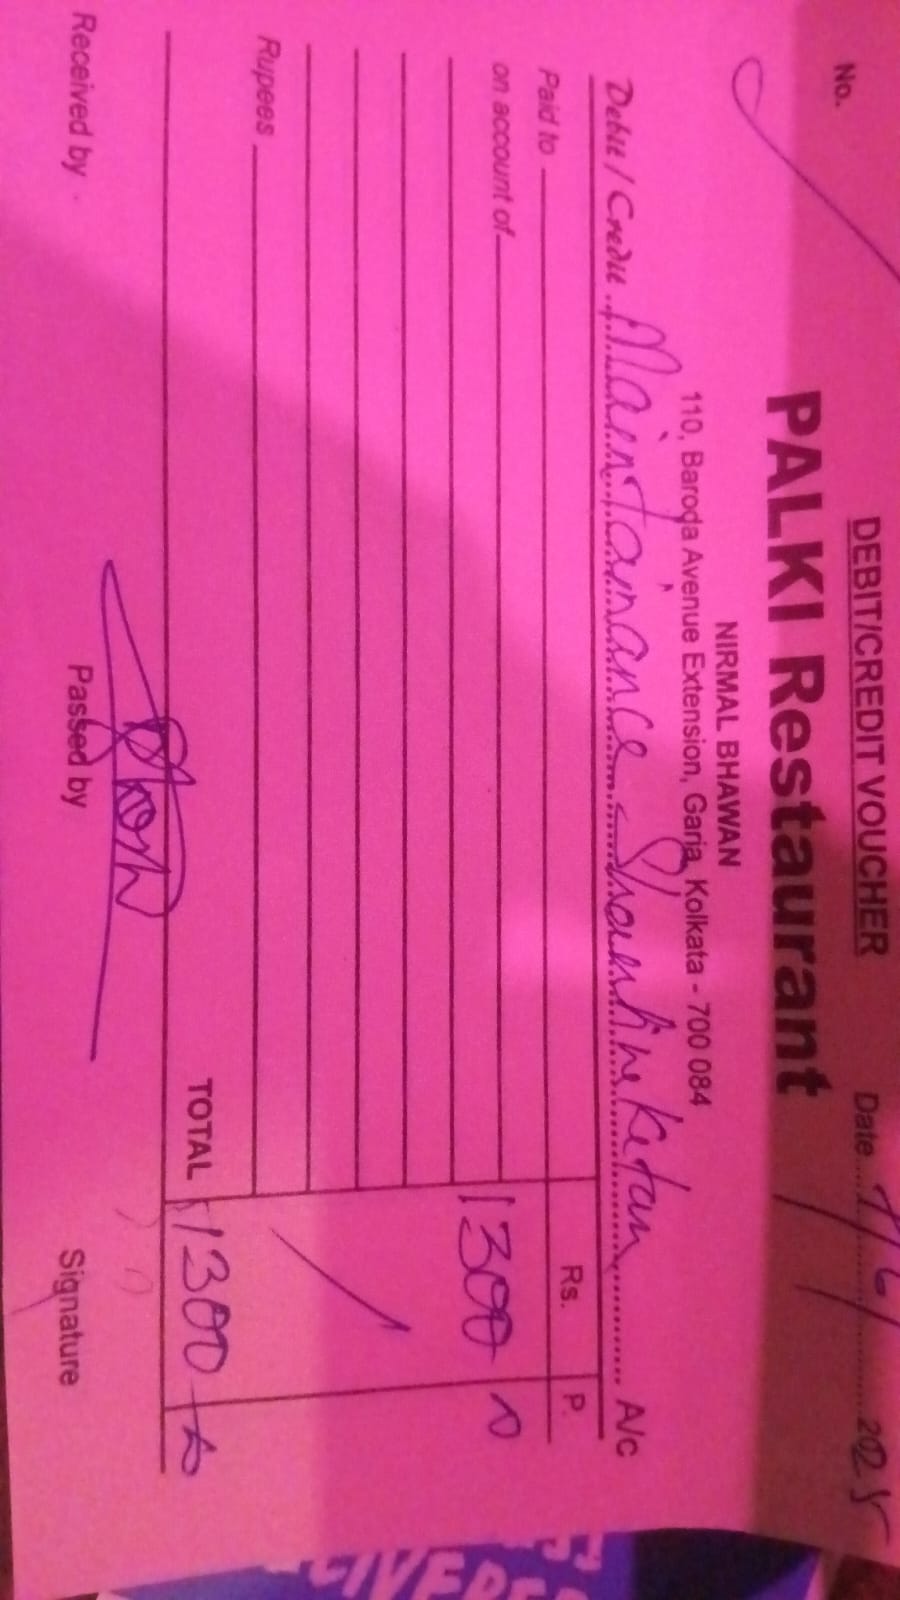 DEBIT/CREDIT VOUCHER
No. Date 7/6/2025
PALKI Restaurant
NIRMAL BHAWAN
110, Baroda Avenue Extension, Garia, Kolkata - 700 084
Debit / Credit Maintainance Shantine Ketan A/c
Paid to Rs. P.
on account of
1300
Rupees
TOTAL 1300
Received by Passed by Signature